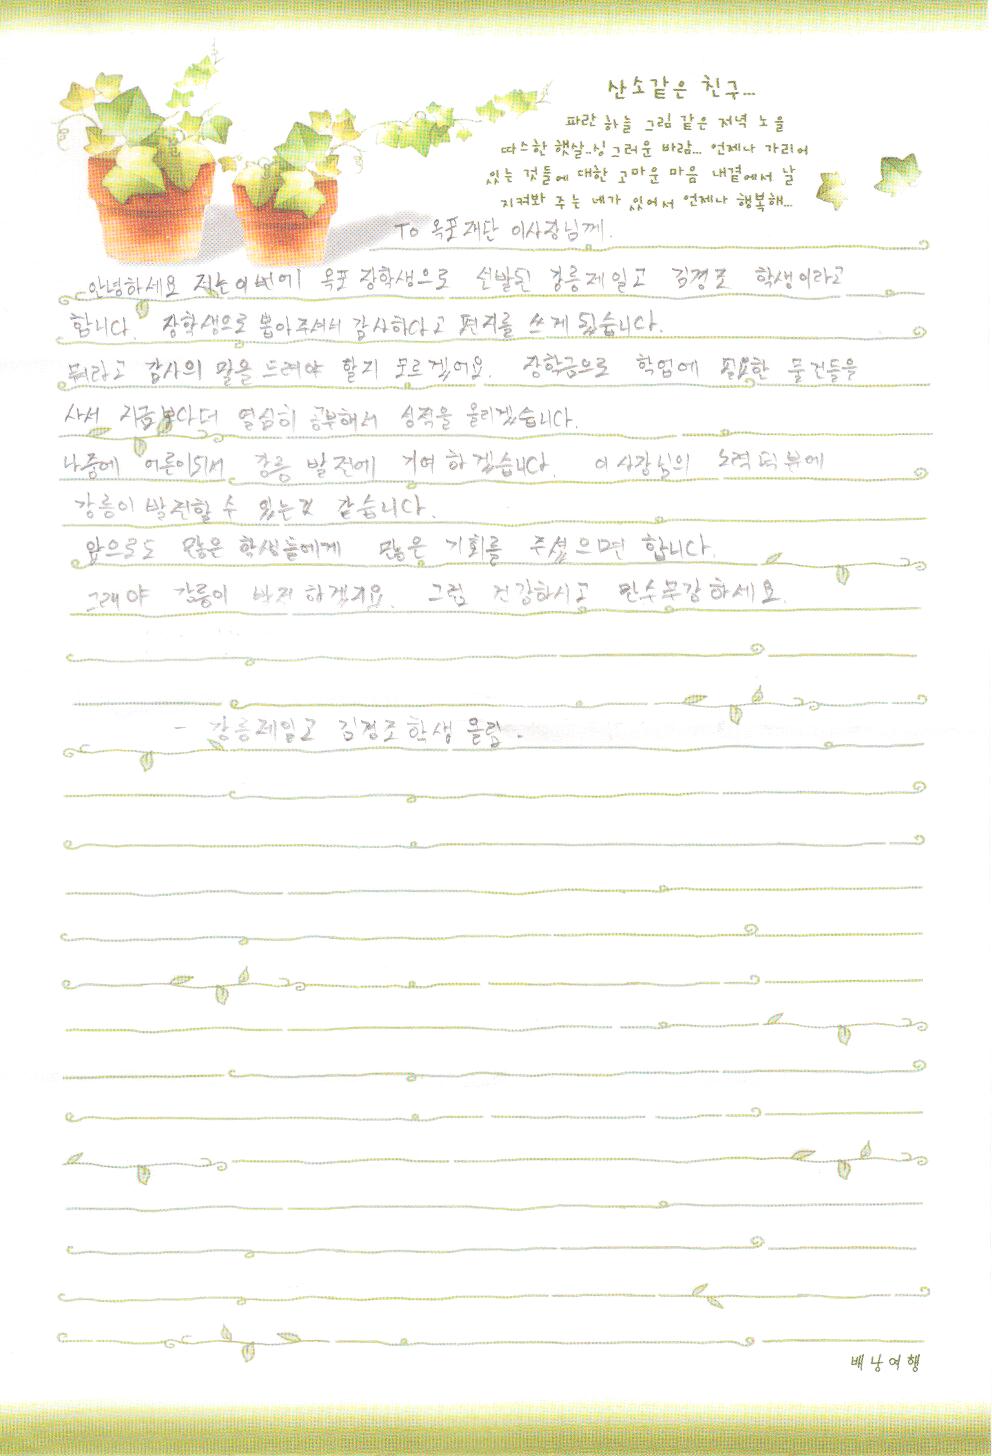 산소같은 친구...
파란 하늘 그림 같은 저녁 노을
따스한 햇살..싱그러운 바람... 언제나 가리어
있는 것들에 대한 고마운 마음 내곁에서 날
지켜봐 주는 네가 있어서 언제나 행복해...
To 옥포재단 이사장님께.
안녕하세요 저는 이번에 옥포 장학생으로 선발된 강릉제일고 김경조 학생이라고
합니다. 장학생으로 뽑아주셔서 감사하다고 편지를 쓰게 됬습니다.
뭐라고 감사의 말을 드려야 할지 모르겠어요. 장학금으로 학업에 필요한 물건들을
사서 지금보다 더 열심히 공부해서 성적을 올리겠습니다.
나중에 어른이되서 강릉 발전에 기여하겠습니다. 이사장님의 노력덕부에
강릉이 발전할 수 있는것 같습니다.
앞으로도 많은 학생들에게 많은 기회를 주셨으면 합니다.
그래야 강릉이 발전하겠지요. 그럼 건강하시고 만수무강하세요.
- 강릉제일고 김경조학생 올림.
배낭여행